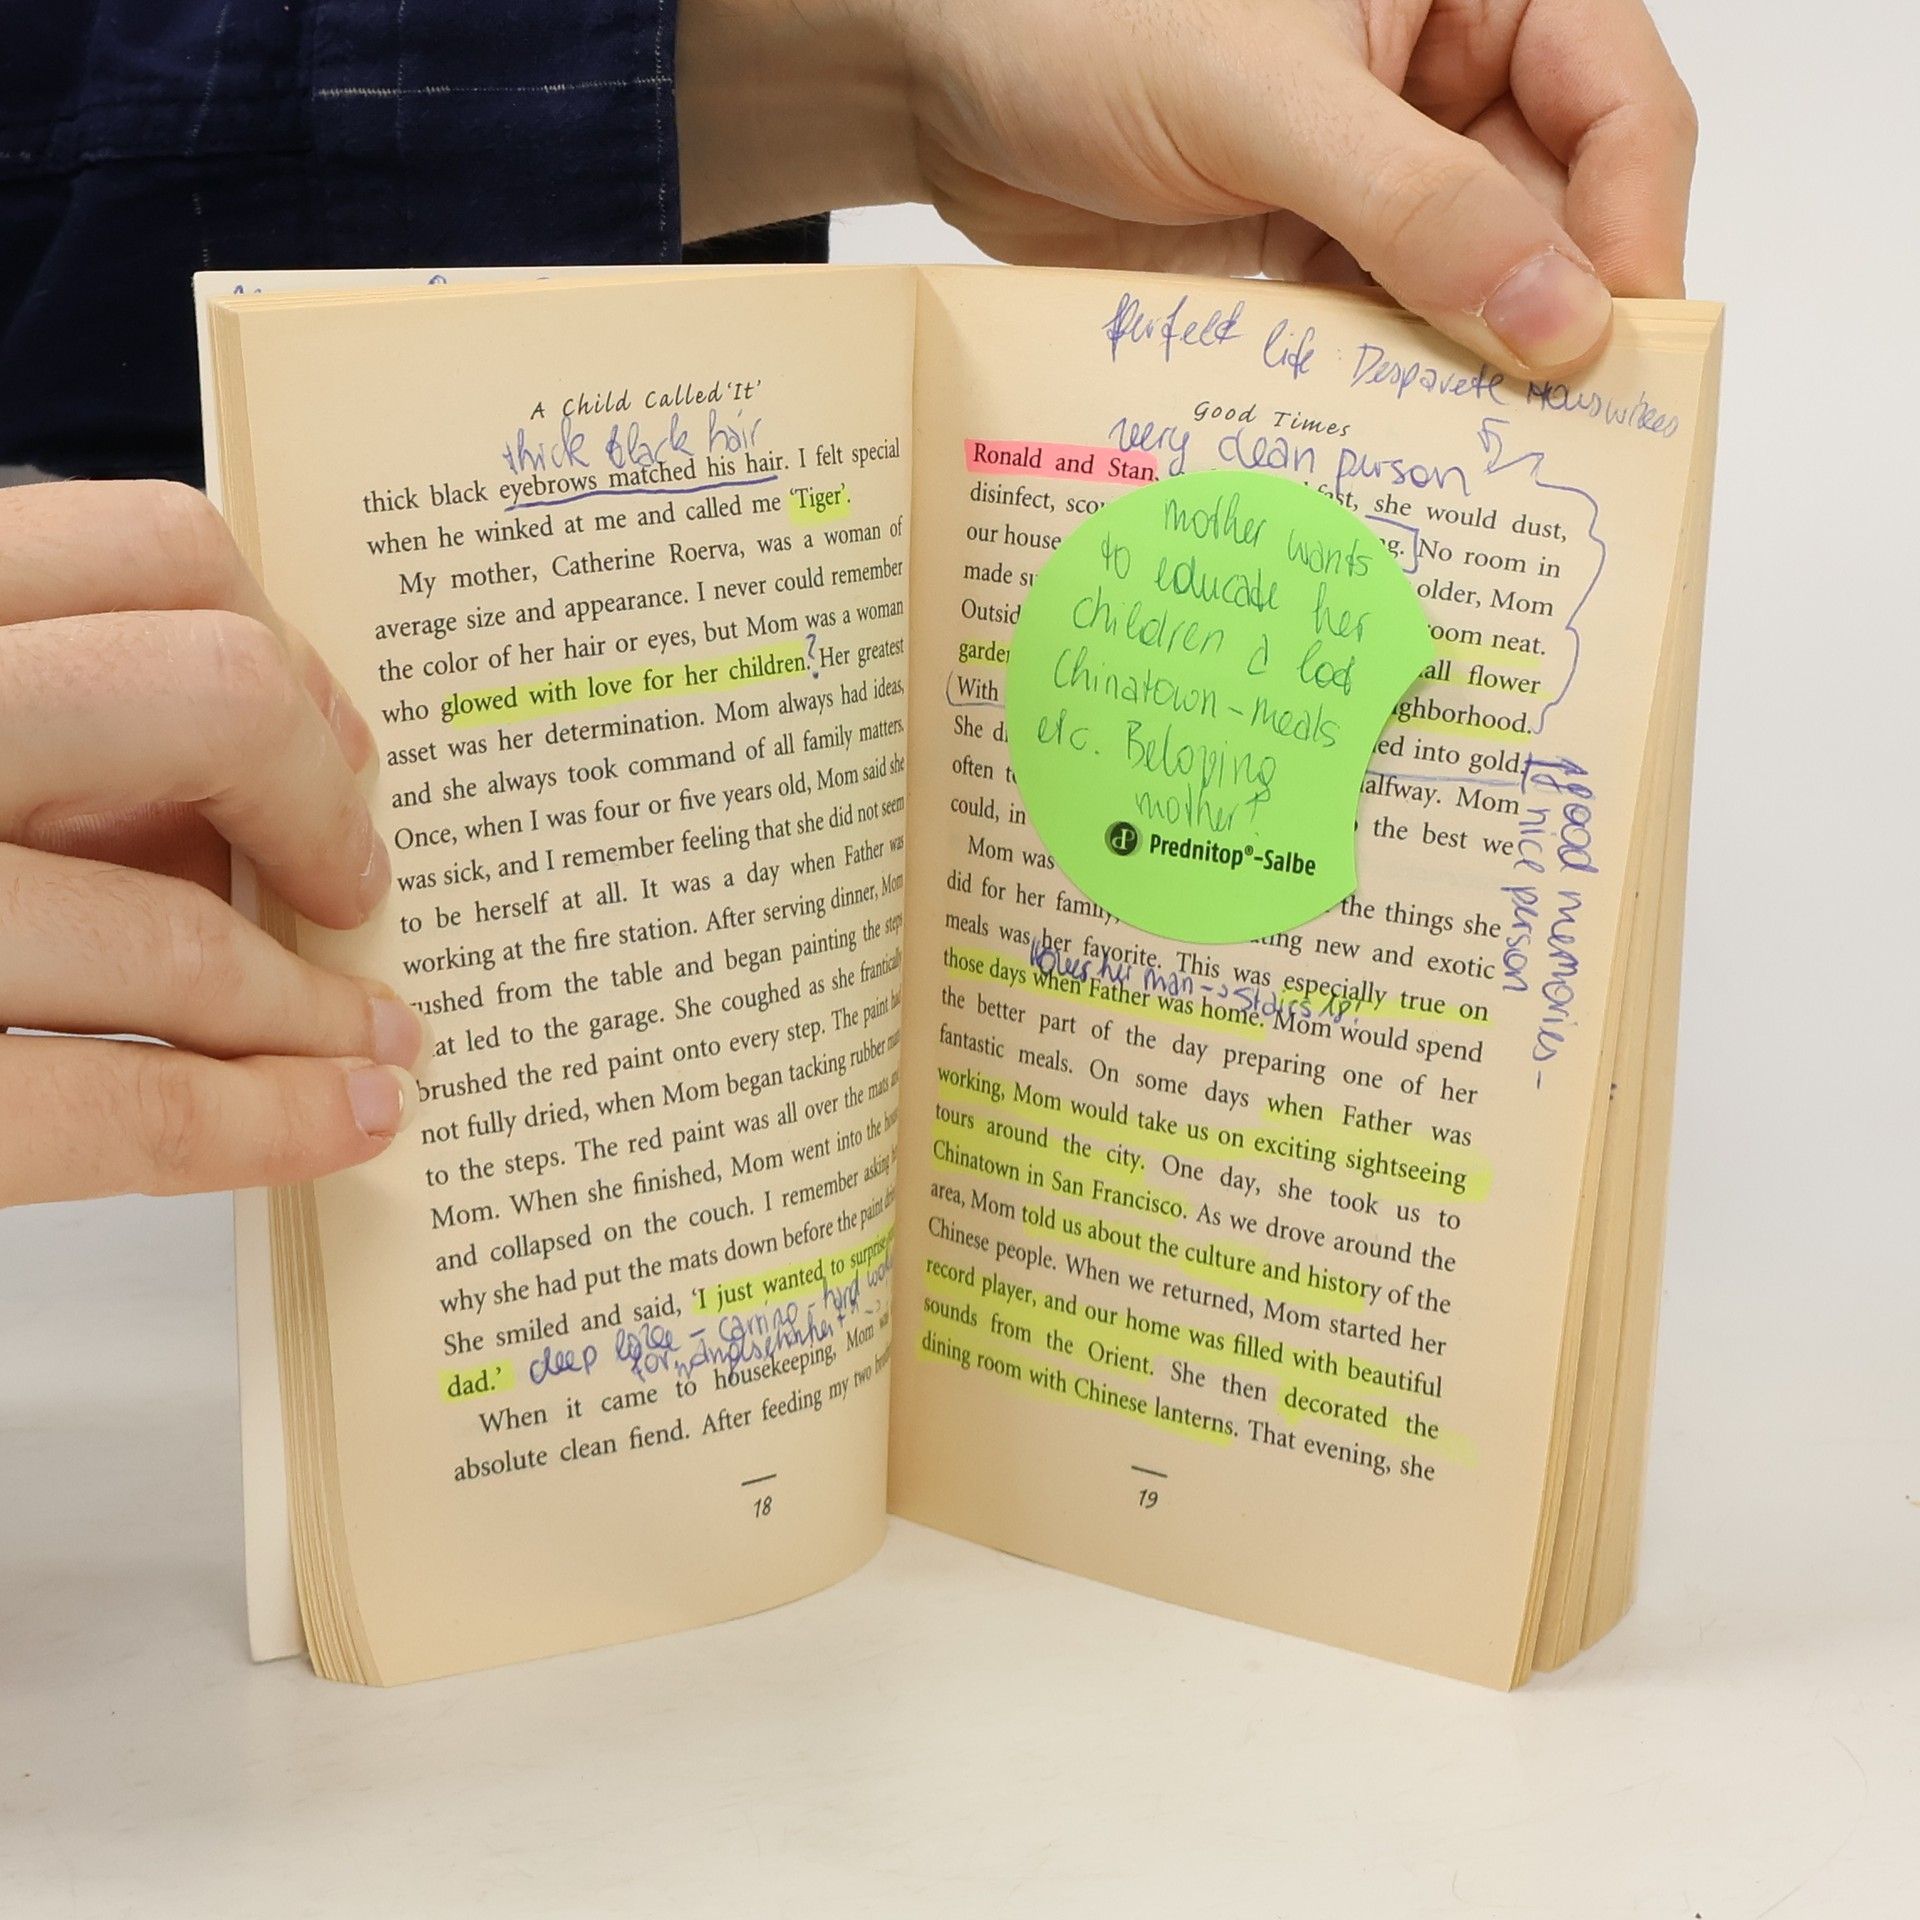 A Child Called 'It'
thick black hair
thick black eyebrows matched his hair. I felt special
when he winked at me and called me 'Tiger'.
My mother, Catherine Roerva, was a woman of
average size and appearance. I never could remember
the color of her hair or eyes, but Mom was a woman
who glowed with love for her children.? Her greatest
asset was her determination. Mom always had ideas,
and she always took command of all family matters.
Once, when I was four or five years old, Mom said she
was sick, and I remember feeling that she did not seem
to be herself at all. It was a day when Father was
working at the fire station. After serving dinner, Mom
rushed from the table and began painting the steps
at led to the garage. She coughed as she frantically
brushed the red paint onto every step. The paint had
not fully dried, when Mom began tacking rubber mats
to the steps. The red paint was all over the mats and
Mom. When she finished, Mom went into the house
and collapsed on the couch. I remember asking
why she had put the mats down before the paint dried
She smiled and said, 'I just wanted to surprise
dad.'
deep love – carring – hard work
When it came to housekeeping, Mom
absolute clean fiend. After feeding my two
18
perfekt life Desparete Houswifes
Good Times
very clean person
Ronald and Stan,
fast, she would dust,
disinfect, scou
g. No room in
our house
older, Mom
made su
oom neat.
Outsid
all flower
garde
ighborhood.
With
ed into gold.
She di
alfway. Mom
often t
the best we
could, in
Mom was
the things she
did for her family,
ting new and exotic
meals was her favorite. This was especially true on
loves her man -> Stairs 18!
those days when Father was home. Mom would spend
the better part of the day preparing one of her
fantastic meals. On some days when Father was
working, Mom would take us on exciting sightseeing
tours around the city. One day, she took us to
Chinatown in San Francisco. As we drove around the
area, Mom told us about the culture and history of the
Chinese people. When we returned, Mom started her
record player, and our home was filled with beautiful
sounds from the Orient. She then decorated the
dining room with Chinese lanterns. That evening, she
19
mother wants
to educate her
children a lot
Chinatown-meals
etc. Beloving
mother!
Prednitop®-Salbe
good memories –
nice person